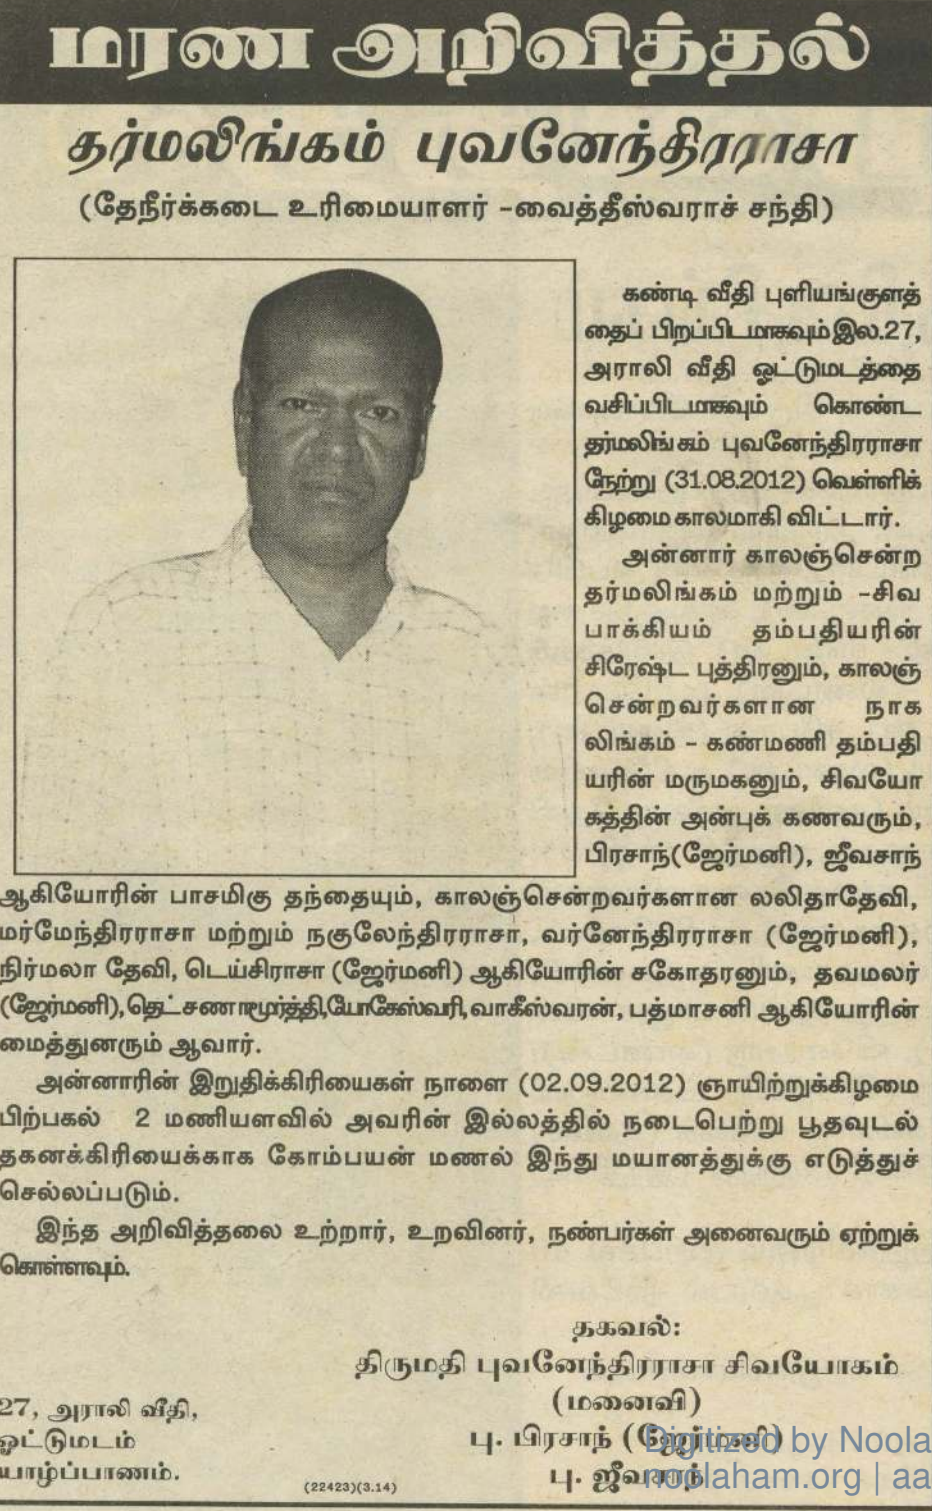 மரண அறிவித்தல்
தர்மலிங்கம் புவனேந்திரராசா
(தேநீர்க்கடை உரிமையாளர் -வைத்தீஸ்வராச் சந்தி)
கண்டி வீதி புளியங்குளத்
தைப் பிறப்பிடமாகவும் இல.27,
அராலி வீதி ஓட்டுமடத்தை
வசிப்பிடமாகவும் கொண்ட
தர்மலிங்கம் புவனேந்திரராசா
நேற்று (31.08.2012) வெள்ளிக்
கிழமை காலமாகி விட்டார்.
அன்னார் காலஞ்சென்ற
தர்மலிங்கம் மற்றும் -சிவ
பாக்கியம் தம்பதியரின்
சிரேஷ்ட புத்திரனும், காலஞ்
சென்றவர்களான நாக
லிங்கம் - கண்மணி தம்பதி
யரின் மருமகனும், சிவயோ
கத்தின் அன்புக் கணவரும்,
பிரசாந்(ஜேர்மனி), ஜீவசாந்
ஆகியோரின் பாசமிகு தந்தையும், காலஞ்சென்றவர்களான லலிதாதேவி,
மர்மேந்திரராசா மற்றும் நகுலேந்திரராசா, வர்னேந்திரராசா (ஜேர்மனி),
நிர்மலா தேவி, டெய்சிராசா (ஜேர்மனி) ஆகியோரின் சகோதரனும், தவமலர்
(ஜேர்மனி), தெட்சணாமூர்த்தி, யோகேஸ்வரி, வாகீஸ்வரன், பத்மாசனி ஆகியோரின்
மைத்துனரும் ஆவார்.
அன்னாரின் இறுதிக்கிரியைகள் நாளை (02.09.2012) ஞாயிற்றுக்கிழமை
பிற்பகல் 2 மணியளவில் அவரின் இல்லத்தில் நடைபெற்று பூதவுடல்
தகனக்கிரியைக்காக கோம்பயன் மணல் இந்து மயானத்துக்கு எடுத்துச்
செல்லப்படும்.
இந்த அறிவித்தலை உற்றார், உறவினர், நண்பர்கள் அனைவரும் ஏற்றுக்
கொள்ளவும்.
தகவல்:
திருமதி புவனேந்திரராசா சிவயோகம்
(மனைவி)
பு. பிரசாந் (ஜேர்மனி)
பு. ஜீவசாந்
27, அராலி வீதி,
ஓட்டுமடம்
யாழ்ப்பாணம்.
(22423)(3.14)
Digitized by Noola
noolaham.org | aa